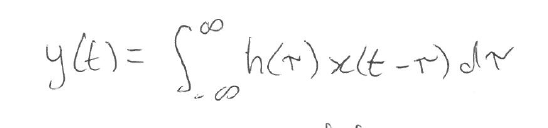 y(t) = ∫_{-∞}^{∞} h(τ) x(t-τ) dτ